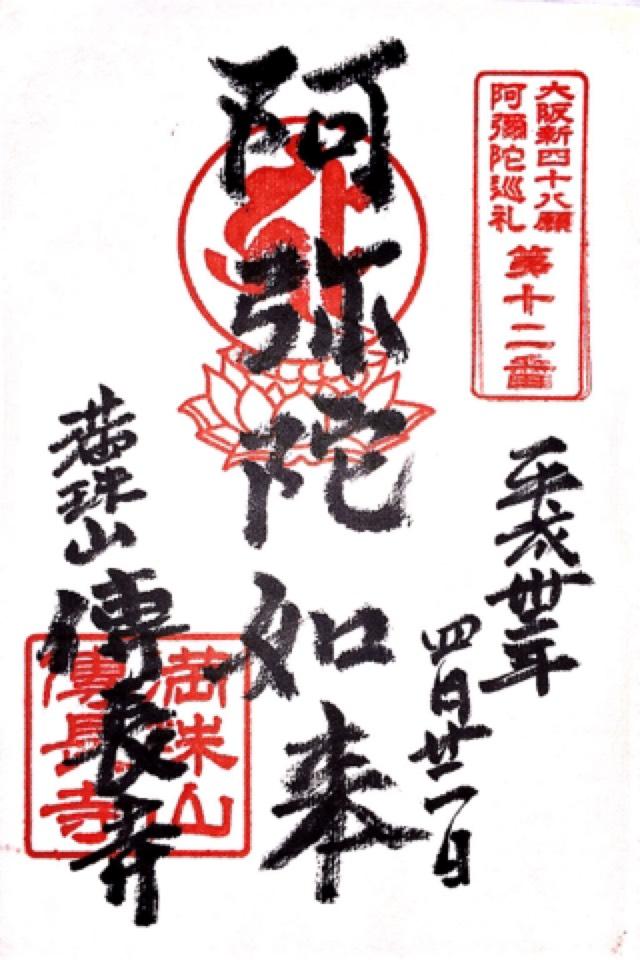 大阪新四十八願
阿彌陀巡礼
第十二番
平成丗一年
四月廿二日
阿弥陀如来
満珠山
傳長寺
満珠山
傳長寺